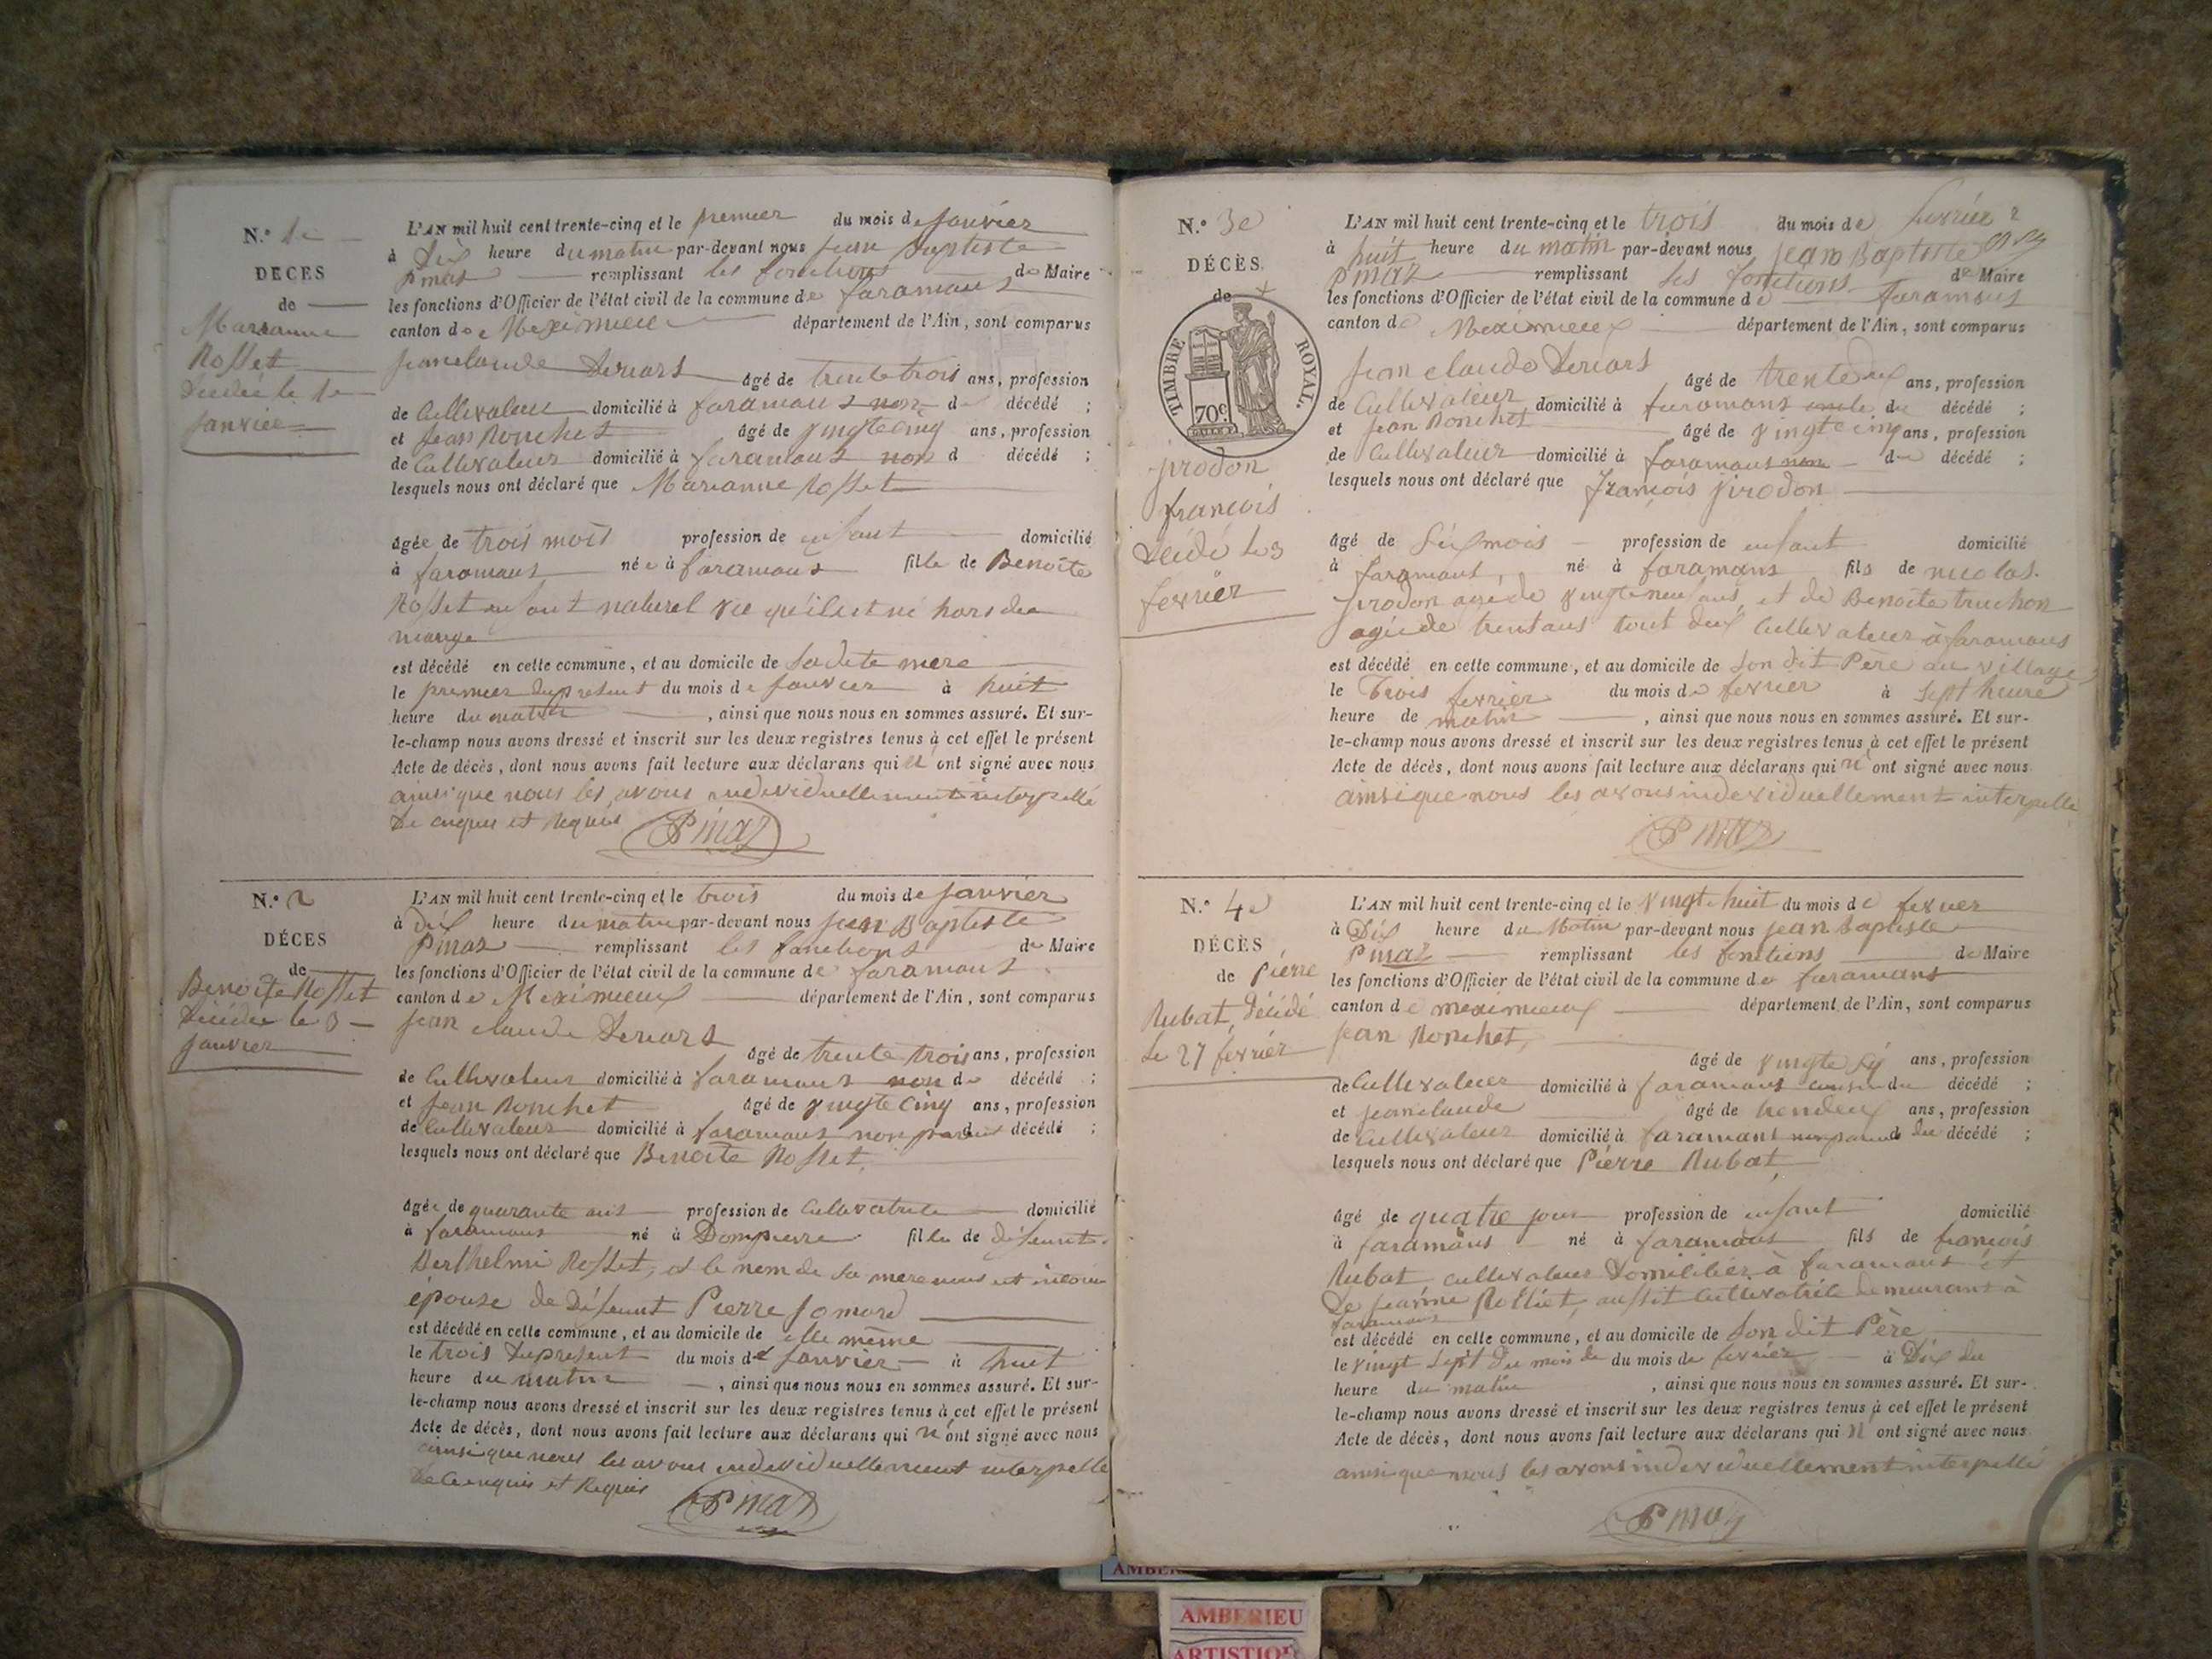 N.° 1e
DÉCES
de
Marianne
Rosset
Décédée le 1er
janvier
L'AN mil huit cent trente-cinq et le premier du mois de janvier
à Dix heure du matin par-devant nous jean Baptiste
Pmaz remplissant les fonctions de Maire
les fonctions d'Officier de l'état civil de la commune de faramans
canton de Meximieux département de l'Ain, sont comparus
jean claude âgé de trente trois ans, profession
de Cultivateur domicilié à faramans non d décédé ;
et jean Ronchet âgé de vingt cinq ans, profession
de Cultivateur domicilié à faramans non d décédé ;
lesquels nous ont déclaré que Marianne Rosset
agée de trois mois profession de enfant domicilié
à faramans née à faramans fille de Benoite
Rosset enfant naturel vu qu'il est né hors de
mariage
est décédé en cette commune, et au domicile de sa dite mere
le premier du present du mois de janvier à huit
heure du matin , ainsi que nous nous en sommes assuré. Et sur-
le-champ nous avons dressé et inscrit sur les deux registres tenus à cet effet le présent
Acte de décès, dont nous avons fait lecture aux déclarans qui n' ont signé avec nous
ainsi que nous les avons individuellement interpellé
De enquis et Requis Pmaz
N.° 2
DÉCES
de
Benoite Rosset
Décédée le 3
janvier
L'AN mil huit cent trente-cinq et le trois du mois de janvier
à dix heure du matin par-devant nous jean Baptiste
Pmaz remplissant les fonctions de Maire
les fonctions d'Officier de l'état civil de la commune de faramans
canton de Meximieux département de l'Ain, sont comparus
jean claude âgé de trente trois ans, profession
de Cultivateur domicilié à faramans non de décédé ;
et jean Ronchet âgé de vingt cinq ans, profession
de Cultivateur domicilié à faramans non parent décédé ;
lesquels nous ont déclaré que Benoite Rosset
âgée de quarante ans profession de Cultivatrice domicilié
à faramans né à Dompierre fille de défeunt
Berthelmi Rosset, et le nom de sa mere nous est inconu
épouse de Défeunt Pierre jomard
est décédé en cette commune, et au domicile de elle même
le trois du present du mois de janvier à huit
heure du matin , ainsi que nous nous en sommes assuré. Et sur-
le-champ nous avons dressé et inscrit sur les deux registres tenus à cet effet le présent
Acte de décès, dont nous avons fait lecture aux déclarans qui n' ont signé avec nous
ainsi que nous les avons individuellement interpellé
De enquis et Requis Pmaz
N.° 3e
DÉCÈS
de
TIMBRE ROYAL.
70c.
jirodon
françois
Décédé le 3
fevrier
L'AN mil huit cent trente-cinq et le trois du mois de fevrier
à huit heure du matin par-devant nous jean Baptiste
Pmaz remplissant les fonctions de Maire
les fonctions d'Officier de l'état civil de la commune de faramans
canton de Meximieux département de l'Ain, sont comparus
jean claude âgé de trente deux ans, profession
de Cultivateur domicilié à faramans du décédé ;
et jean Ronchet âgé de vingt cinq ans, profession
de Cultivateur domicilié à faramans non du décédé ;
lesquels nous ont déclaré que françois jirodon
âgé de six mois profession de enfant domicilié
à faramans, né à faramans fils de nicolas
jirodon agé de vingt neuf ans, et de Benoite truchon
agée de trent ans tout deux Cultivateur à faramans
est décédé en cette commune, et au domicile de son dit Père au village
le Trois fevrier du mois de fevrier à sept heure
heure de matin , ainsi que nous nous en sommes assuré. Et sur-
le-champ nous avons dressé et inscrit sur les deux registres tenus à cet effet le présent
Acte de décès, dont nous avons fait lecture aux déclarans qui n' ont signé avec nous
ainsi que nous les avons individuellement interpellé
Pmaz
N.° 4e
DÉCÈS
de Pierre
Rubat, Décédé
Le 27 fevrier
L'AN mil huit cent trente-cinq et le vingt huit du mois de fevrier
à Dix heure du Matin par-devant nous jean Baptiste
Pmaz remplissant les fonctions de Maire
les fonctions d'Officier de l'état civil de la commune de faramans
canton de meximieux département de l'Ain, sont comparus
jean Ronchet, âgé de vingt six ans, profession
de Cultivateur domicilié à faramans cousin du décédé ;
et jean claude âgé de trendeux ans, profession
de Cultivateur domicilié à faramans non parent du décédé ;
lesquels nous ont déclaré que Pierre Rubat
âgé de quatre jour profession de enfant domicilié
à faramans né à faramans fils de françois
Rubat cultivateur Domicilier à faramans et
De jeanne Rolliet aussit Cultivatrice demeurant à
faramans
est décédé en cette commune, et au domicile de son dit Père
le vingt sept du mois de du mois de fevrier à Dix du
heure du matin , ainsi que nous nous en sommes assuré. Et sur-
le-champ nous avons dressé et inscrit sur les deux registres tenus à cet effet le présent
Acte de décès, dont nous avons fait lecture aux déclarans qui n ont signé avec nous
ainsi que nous les avons individuellement interpellé
Pmaz
AMBERIEU
ARTISTIQUE